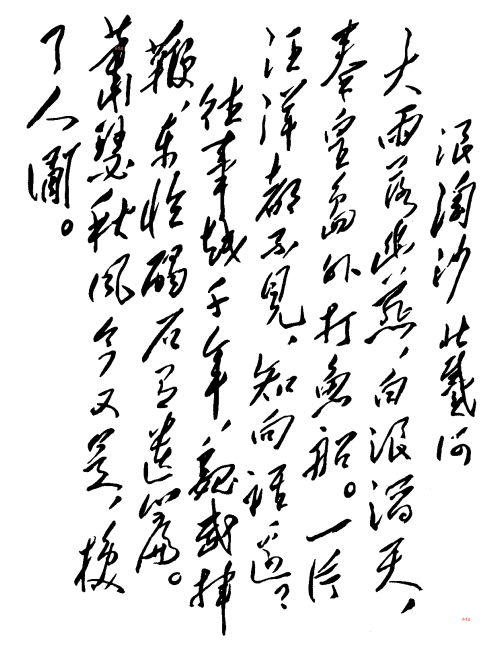 浪淘沙 北戴河
大雨落幽燕，白浪滔天，
秦皇島外打魚船。一片
汪洋都不見，知向誰邊？
往事越千年，魏武揮
鞭，東臨碣石有遺篇。
蕭瑟秋風今又是，換
了人間。